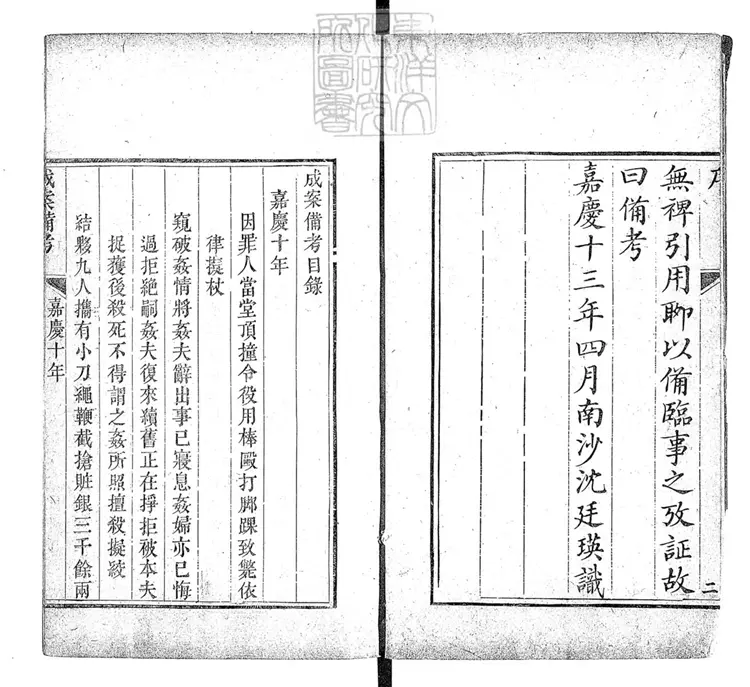 無裨引用聊以備臨事之攷証故
曰備考
嘉慶十三年四月南沙沈廷瑛識
二
成案備考目錄
嘉慶十年
因罪人當堂頂撞令役用棒毆打脚踝致斃依
律擬杖
窺破姦情將姦夫辭出事已寢息姦婦亦已悔
過拒絶嗣姦夫復來續舊正在掙拒被本夫
捉獲後殺死不得謂之姦所照擅殺擬絞
結夥九人攜有小刀繩鞭截搶贓銀三千餘兩
成案備考
嘉慶十年
東洋文
化研究
所圖書